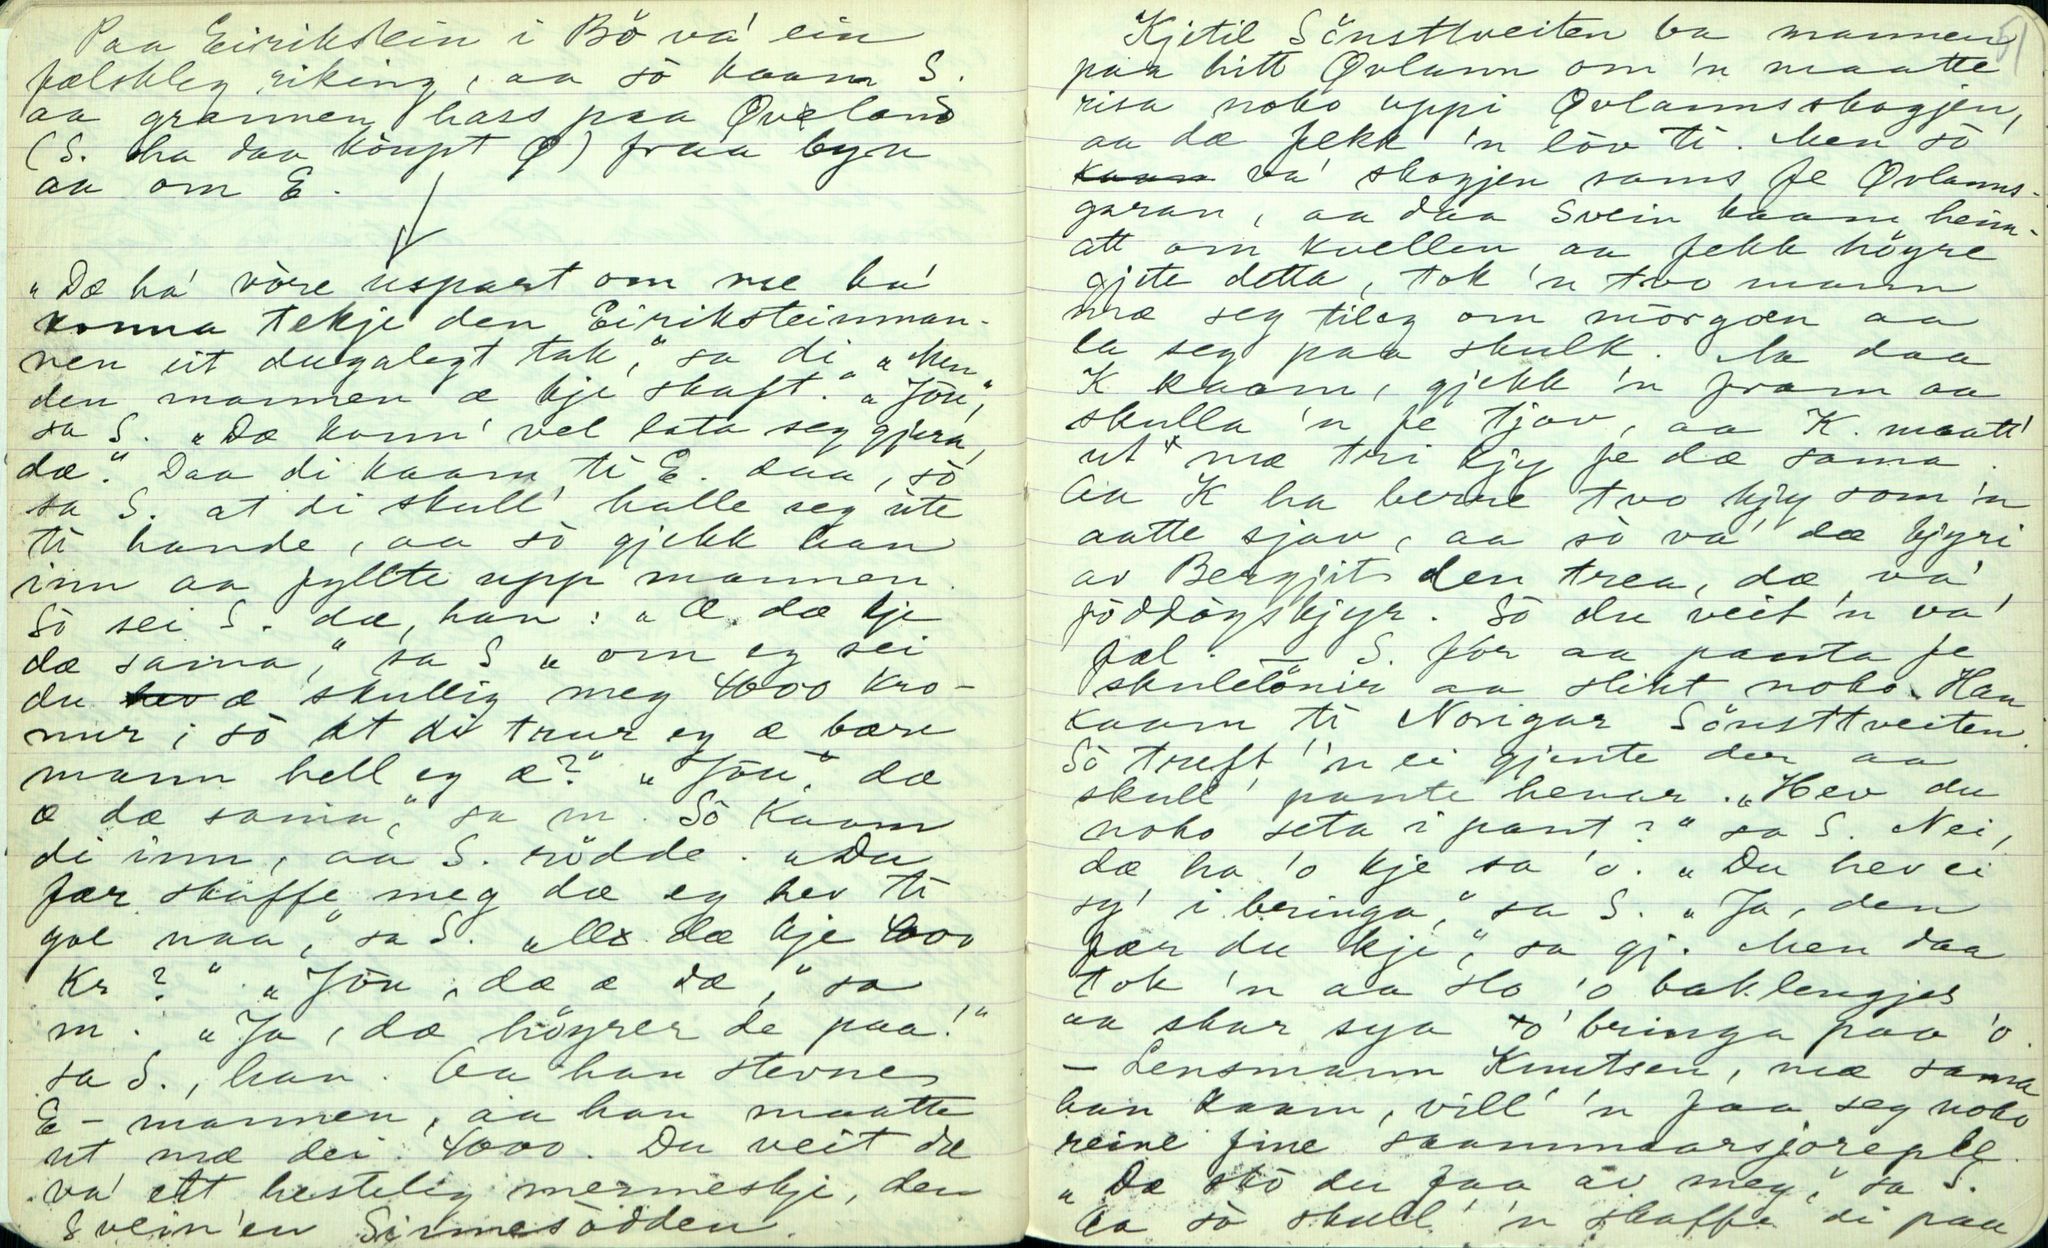 Paa Eirikstein i Bö va' ein
fælsleg riking, aa so kaam S.
aa grannen hass paa Øveland
(S. ha daa köupt Ø) fraa byn
aa om E.
"Dæ ha' vöre uspart om me ha'
konna tekje den Eiriksteinman-
nen eit dugalegt tak," sa di "Men
den mannen æ kje skaft." "Jöu,"
sa S. "Dæ konn' vel lata seg gjera,
dæ." Daa di kaam ti E. daa, so
sa S. at di skull' halle seg ute
ti hande, aa so gjekk han
inn aa fyllte upp mannen.
So sei S. dæ, han: "Æ dæ kje
dæ sama," sa S "om eg sei
du æ skullig meg 4000 kro-
nur i so at di trur eg æ bære
mann hell eg æ?" "Jöu, dæ
æ dæ sama," sa m. So kaam
di inn, aa S. rödde. "Du
fær skaffe meg dæ eg hev ti
goe naa," sa S. "Æ dæ kje 4000
Kr?" "Jöu, dæ æ dæ," sa
m. "Ja, dæ höyrer de paa!"
sa S., han. Aa han stevne
E-mannen, aa han maatte
ut mæ dei 4000. Du veit dæ
va' ett hestelig menneskje, den
Svein'en Sinnesodden.
51
Kjetil Sönsttveiten ba mannen
paa hitt Øvlann om 'n maatte
risa noko uppi Øvlannsskogjen,
aa dæ fekk 'n löv ti. Men so
kaam va' skogjen sams fe Øvlanns-
garan, aa daa Svein kaam heim-
att om kvellen aa fekk höyre
gjete detta, tok 'n two mann
mæ seg tileg om morgoen aa
la seg paa skulk. Aa daa
K kaam, gjekk 'n fram aa
skulla 'n fe tjov, aa K. maatt'
ut mæ tri kjy fe dæ sama.
Aa K ha berre two kjy som 'n
aatte sjav, aa so va' dæ kjyri
av Bergjit den trea, dæ va'
föddögskjyr. So du veit 'n va'
fæl. — S. for aa panta fe
skuletönir aa slikt noko. Han
kaam ti Norigar Sönsttveiten.
So treft 'n ei gjente der aa
skull' pante henar. "Hev du
noko seta i pant?" sa S. Nei,
dæ ha 'o kje sa 'o. "Du hev ei
sy' i bringa," sa S. "Ja, den
fær du kje," sa gj. Men daa
tok 'n aa slo 'o baklengjes
aa skar sya o' bringa paa 'o.
— Lensmann Knutsen, mæ sama
han kaam, vill' 'n faa seg noko
reine fine saammaarsjoreple.
"Dæ sko du faa av meg," sa S.
Aa so skull' 'n skaffe di paa